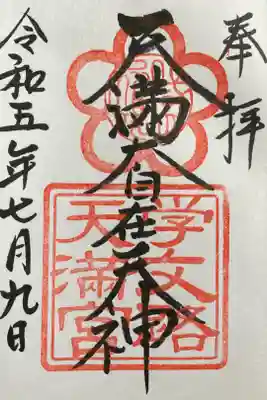 奉拝
天満大自在天神
学文路
天満宮
令和五年七月九日